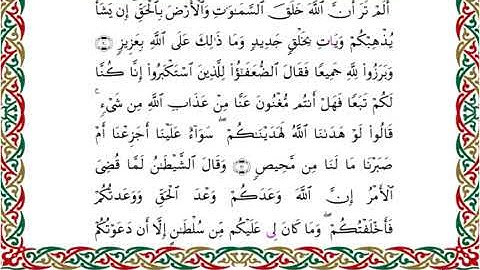 أَلَمْ تَرَ أَنَّ ٱللَّهَ خَلَقَ ٱلسَّمَـٰوَٰتِ وَٱلْأَرْضَ بِٱلْحَقِّ ۚ إِن يَشَأْ
يُذْهِبْكُمْ وَيَأْتِ بِخَلْقٍ جَدِيدٍ وَمَا ذَٰلِكَ عَلَى ٱللَّهِ بِعَزِيزٍ
وَبَرَزُوا۟ لِلَّهِ جَمِيعًا فَقَالَ ٱلضُّعَفَـٰٓؤُا۟ لِلَّذِينَ ٱسْتَكْبَرُوٓا۟ إِنَّا كُنَّا
لَكُمْ تَبَعًا فَهَلْ أَنتُم مُّغْنُونَ عَنَّا مِنْ عَذَابِ ٱللَّهِ مِن شَىْءٍ ۚ
قَالُوا۟ لَوْ هَدَىٰنَا ٱللَّهُ لَهَدَيْنَـٰكُمْ ۖ سَوَآءٌ عَلَيْنَآ أَجَزِعْنَآ أَمْ
صَبَرْنَا مَا لَنَا مِن مَّحِيصٍ وَقَالَ ٱلشَّيْطَـٰنُ لَمَّا قُضِىَ
ٱلْأَمْرُ إِنَّ ٱللَّهَ وَعَدَكُمْ وَعْدَ ٱلْحَقِّ وَوَعَدتُّكُمْ
فَأَخْلَفْتُكُمْ ۖ وَمَا كَانَ لِىَ عَلَيْكُم مِّن سُلْطَـٰنٍ إِلَّآ أَن دَعَوْتُكُمْ